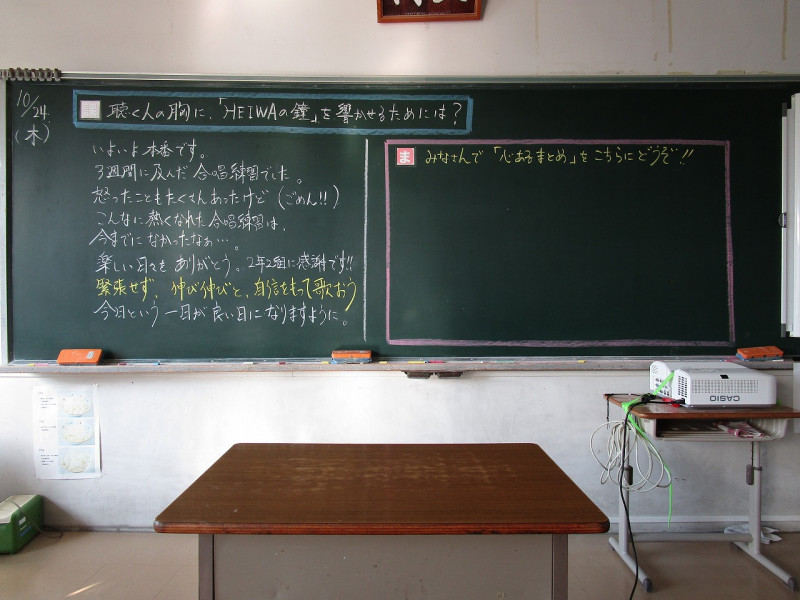 10/24
(木)
聴く人の胸に、「HEIWAの鐘」を響かせるためには?
いよいよ本番です。
3週間に及んだ合唱練習でした。
怒ったこともたくさんあったけど(ごめん!!)
こんなに熱くなれた合唱練習は、
今までになかったなぁ…。
楽しい日々をありがとう。2年2組に感謝です!!
緊張せず、伸び伸びと、自信をもって歌おう
今日という一日が良い日になりますように。
ま みなさんで「心あるまとめ」をこちらにどうぞ!!
CASIO